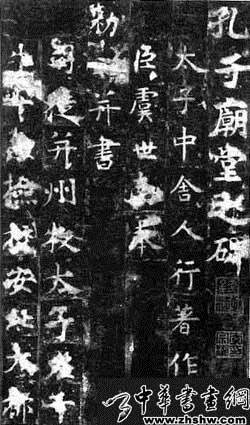 孔子廟堂之碑
太子中舍人行著作
臣虞世南奉
勅并書
司徒并州牧太子左千
檢校安北大都
中華書畫網
www.zhshw.com